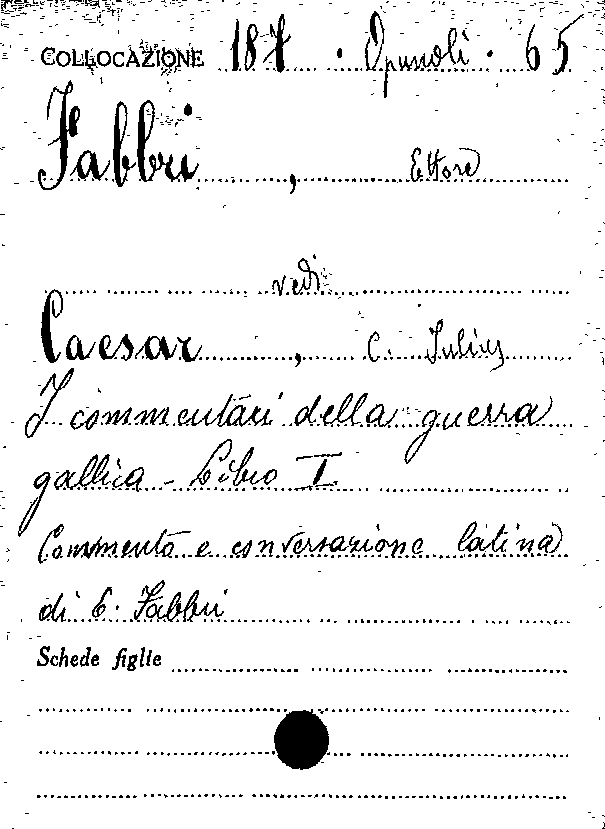 COLLOCAZIONE 187 · Opuscoli · 65
Fabbri , Ettore
vedi
Caesar , C. Iulius
I commentari della guerra
gallica - Libro I
Commento e conversazione latina
di E. Fabbri
Schede figlie